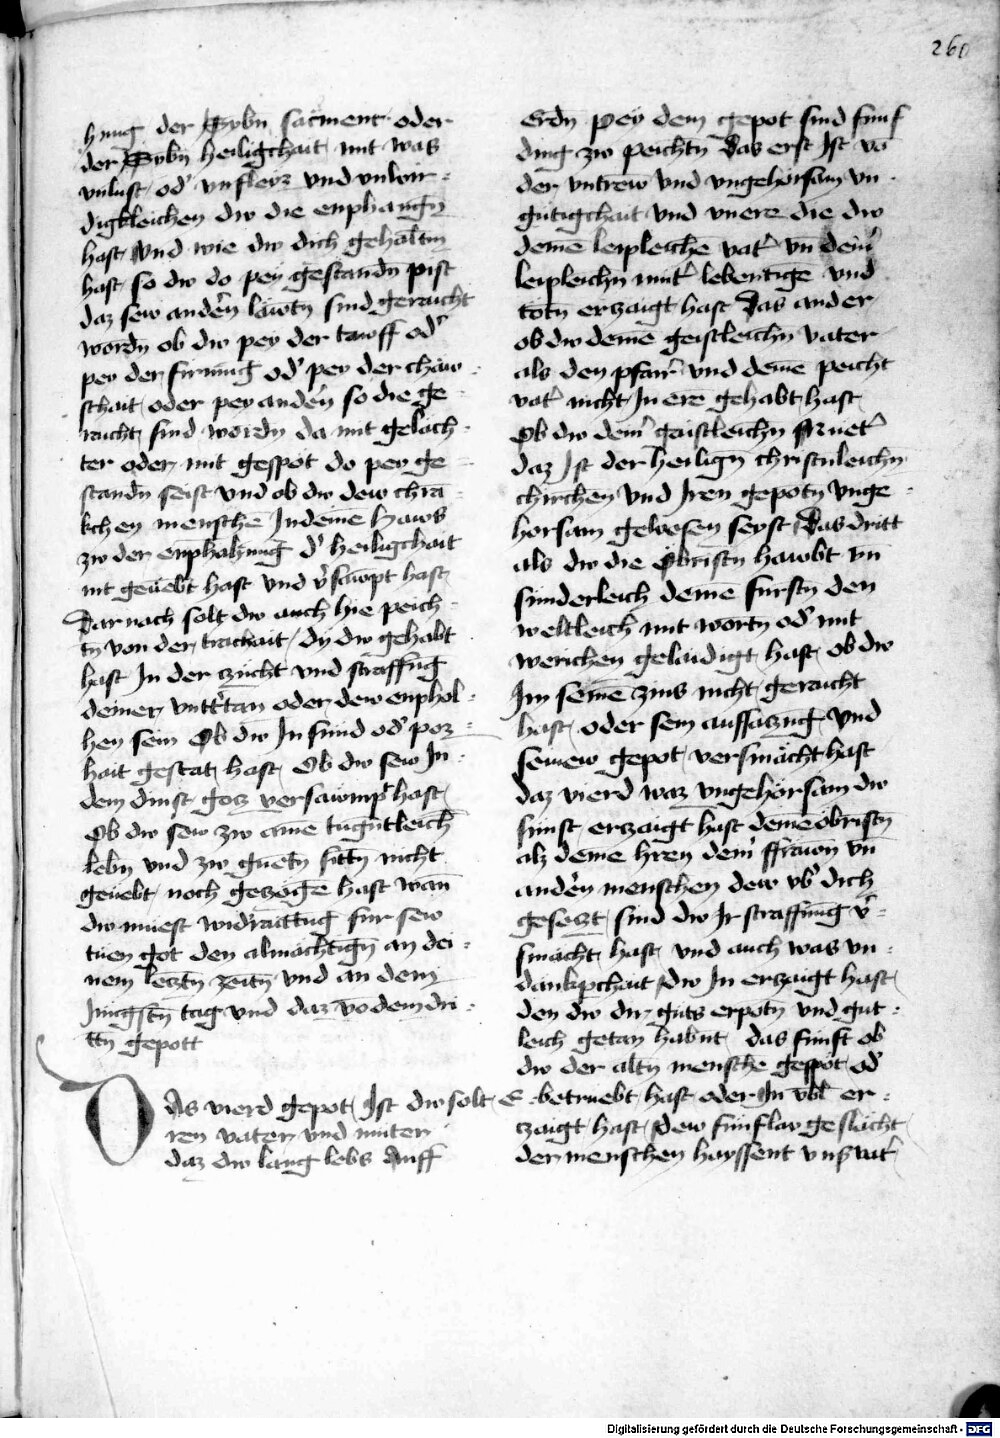 260
hung der Sybn sacment oder
der Sybn heiligchait mit was
vnlust od' vnfleiz vnd vnwir-
digkleichen dw die enphangn̄
hast vnd wie dw dich gehaltn̄
hast so dw do pey gestandn̄ pist
daz sew ander̄n läwtn̄ sind geraicht
wordn̄ ob dw pey der tawff od'
pey der firmu̅g od' pey der chäw-
schait oder pey anden̄ so die ge-
raicht sind wordn̄ da mit geläch-
ter oder mit gespöt do pey ge-
standn̄ seist vnd ob dw dew chra̅-
kchen mensche̅ In deine Haws
zw der enphahu̅g d' heiligchait
nit geüebt hast vnd v'sawpt hast
Dar nach solt dw auch hie peich-
tn̄ von der trachait dy dw gehabt
hast In der zucht vnd straffu̅g
deiner vnt'tan oder dew enphol-
hen sein Ob dw In sünd od' poz-
hait gestat hast Ob dw sew In
dem dinst gotz versawmpt hast
Ob dw sew zw aine tugu̅tleich
lebn̄ vnd zw guetn̄ sittn̄ nicht
geüebt noch gezoge̅ hast wan̄
dw muest widraittug für sew
tuen got den almächtign̄ an dei-
nem lecztn̄ zeitn̄ vnd an dem
Jungstn̄ tag vnd daz vo dem dri-
ttn̄ gepott
DAs vierd gepot Ist dw solt E-
ren vater vnd muter
daz dw lang lebs Auff
Erdn̄ Pey dem gepot sind fünf
ding zw peichtn̄ Das erst Ist vo̅
der vntrew vnd vngehorsam vn̄
gütigchait vnd vnere die dw
deine̅ leipleiche̅ vat' vn̄ dein̄'
leipleichn̄ mut' lebentige vnd
totn̄ erzaigt hast Das ander
ob dw deine̅ geistleichn̄ vater
als den pfarr' vnd deine̅ peicht
vat' nicht In ere̅ gehabt hast
Ob dw dein' gaistleichn̄ Muet'
daz Ist der heilign̄ christnleichn̄
chirchen vnd Iren gepotn̄ vnge-
horsam gewesen seyst Das dritt
als dw die Obristn̄ hawbt vn̄
sünderleich deine̅ fürstn̄ den
weltleich mit wortn̄ od' mit
werichen gelaidigt hast ob dw
Im seine̅ zins nicht geraicht
hast oder sein auffaczu̅g vnd
seinew gepot versmächt hast
daz vierd waz vngehörsam dw
sünst erzaigt hast deine̅ öbristn̄
alz deine hren dein' ffrawn̄ vn̄
andern̄ menschen dew vb' dich
geseczt sind dw Ir straffu̅g v'-
smächt hast vnd auch was vn-
dankpchait dw In erzaigt hast
den dw dir güts erpotn̄ vnd güt-
leich getan habnt das fünft ob
dw der altn̄ mensche gespot od'
betruebt hast oder In vbl er-
zaigt hast dew fünflay geslächt
der menschen hayssent vns' vat'
Digitalisierung gefördert durch die Deutsche Forschungsgemeinschaft - DFG